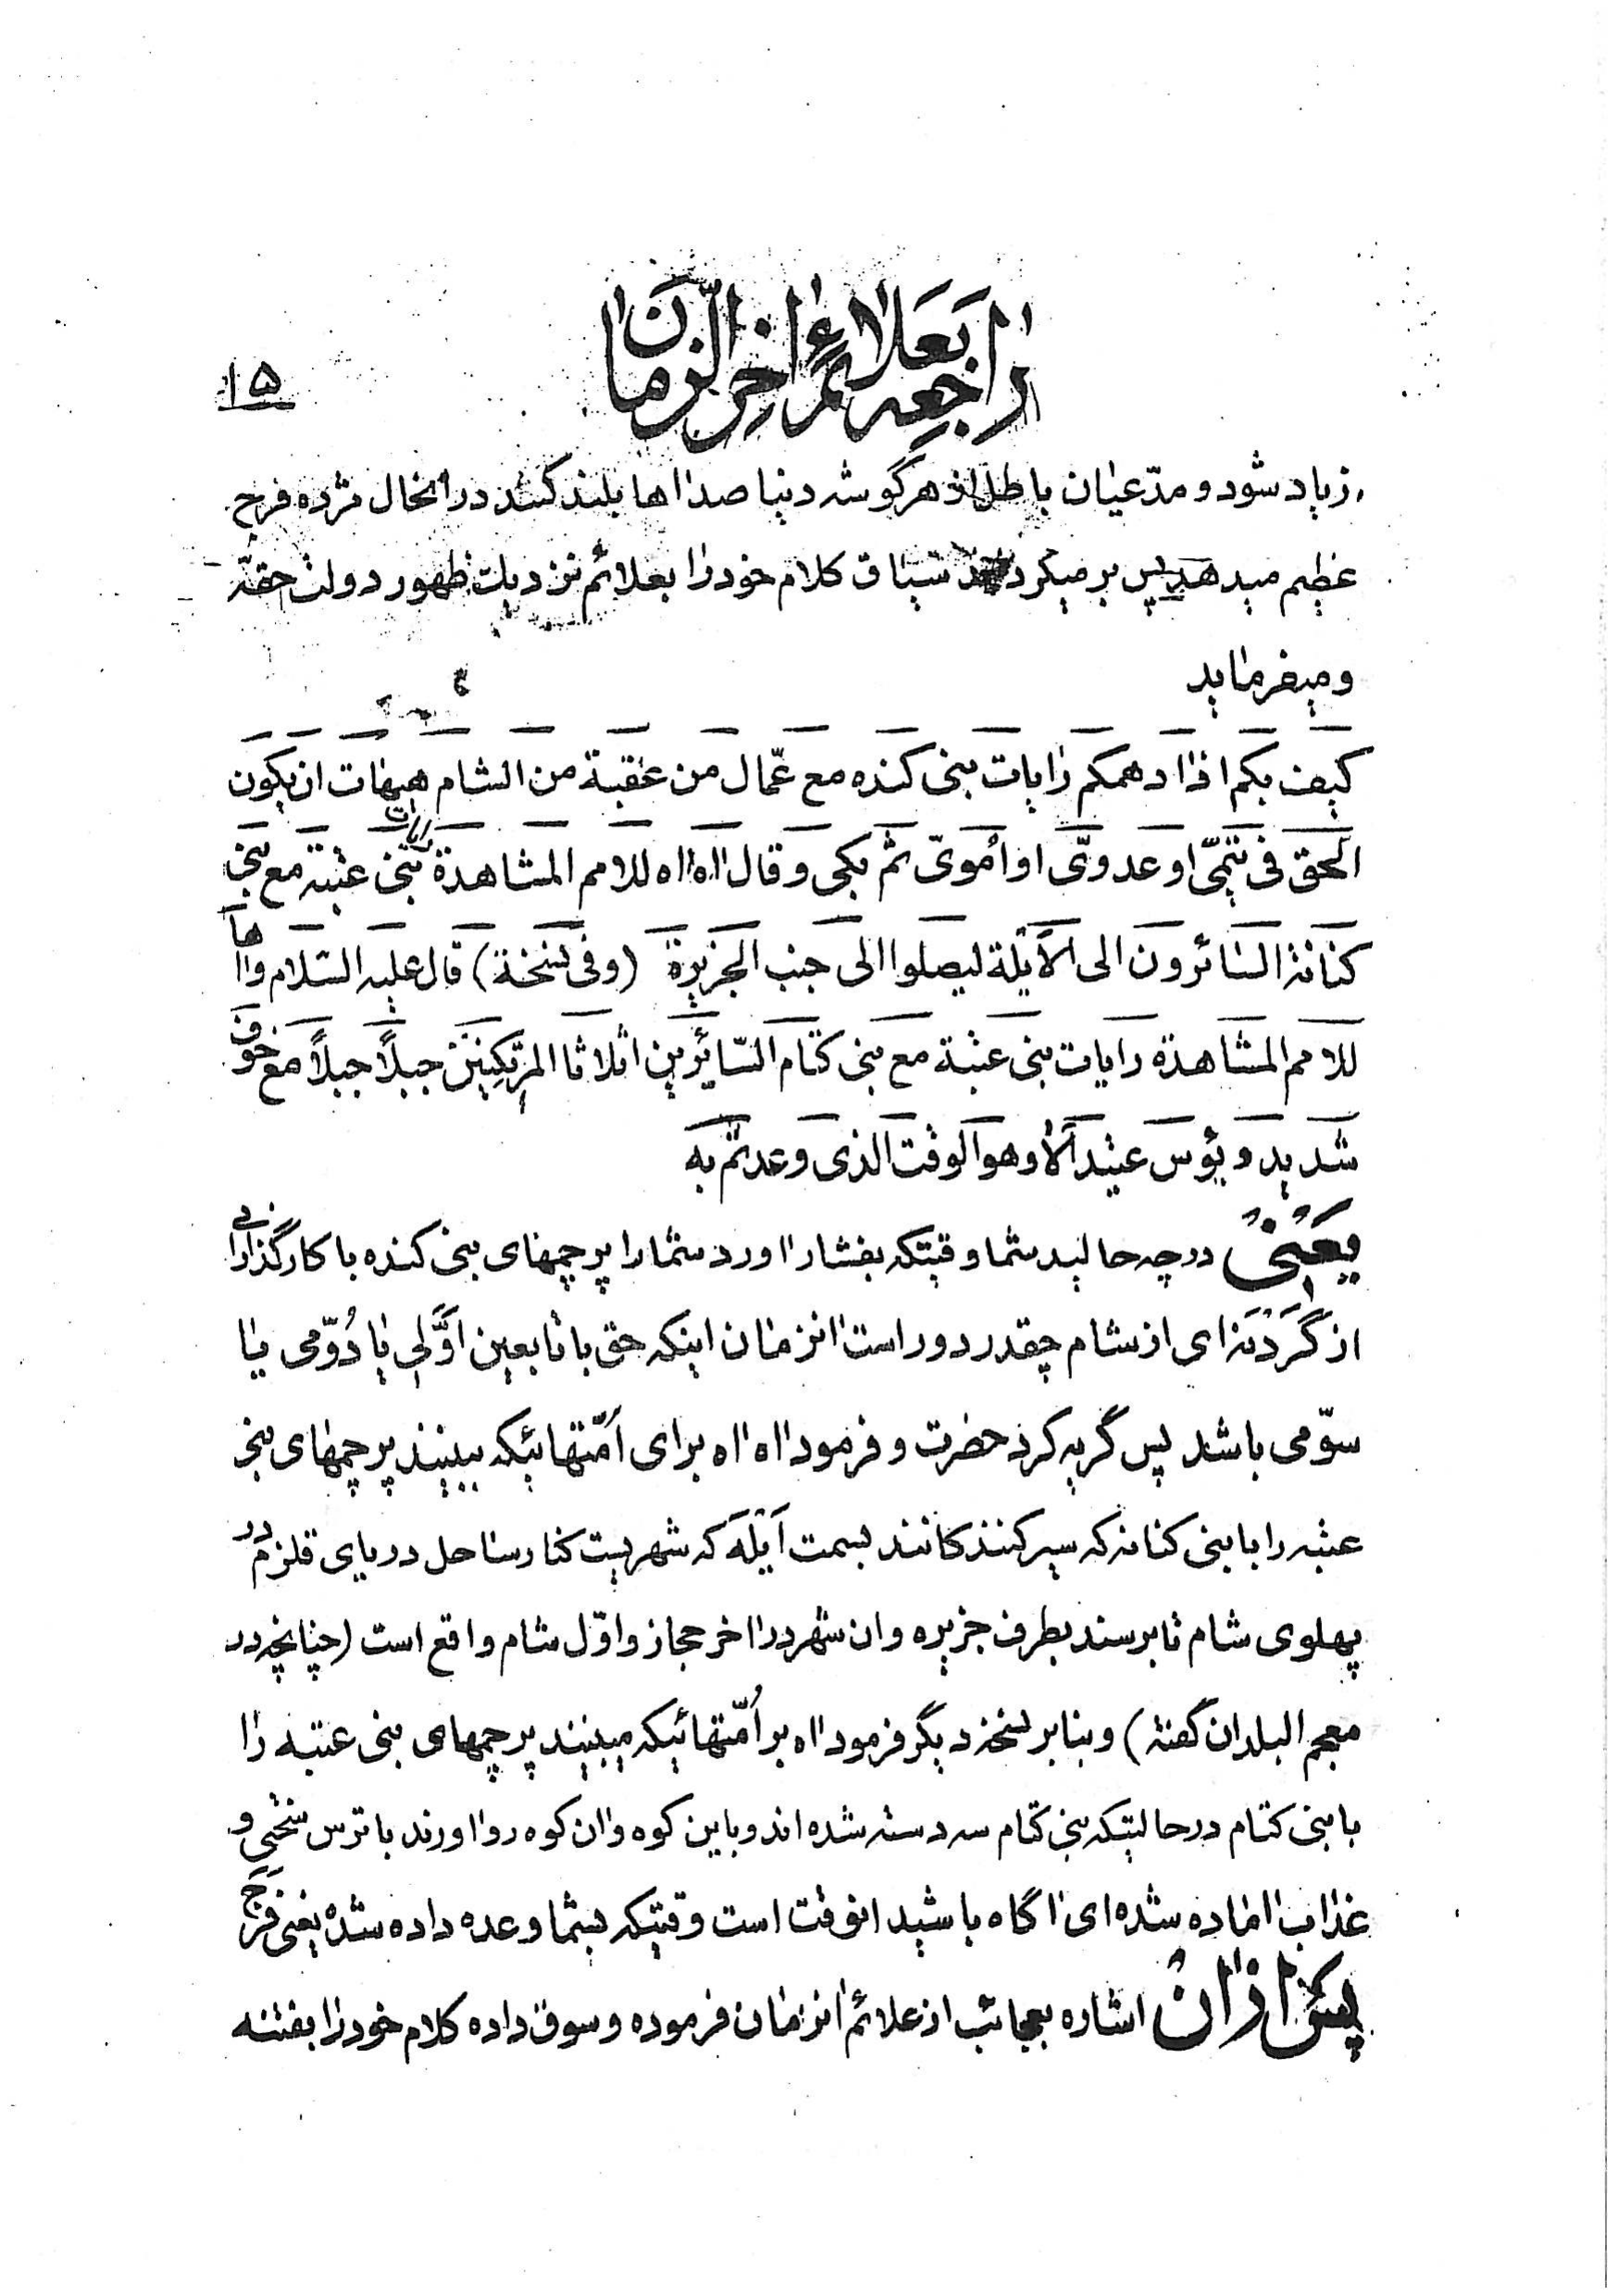 راجعه بعلائم اخر الزمان
۱۵
زیاد شود و مدّعیان باطل از هر گوشه دنیا صداها بلند کنند در انحال مژده فرج
عظیم میدهد پس برمیگرداند سیاق کلام خود را بعلائم نزدیک ظهور دولت حقّه
و میفرماید
کیف بکم اذا دهمکم رایات بنی کنده مع عمّال من عقبة من الشام هیهات ان یکون
الحق فی تیمیّ او عدویّ او اُمویّ ثم بکی و قال اه اه للامم المشاهدة رایات بنی عتبة مع بنی
کنانة السائرون الی الاَیلة لیصلوا الی جنب الجزیرة (وفی نسخة) قال علیه السّلام واهاً
للامم المشاهدة رایات بنی عتبة مع بنی کتام السّائرین اثلاثا المرتکبین جبلاً جبلاً مع خوف
شدید و بؤس عتید اَلا و هو الوقت الذی وعدتم به
یعنی در چه حالید شما وقتیکه بفشار اورد شما را پرچمهای بنی کنده با کارگذارانی
از گَردَنه‌ای از شام چقدر دور است انزمان اینکه حق با تابعین اوّلی یا دُوّمی یا
سوّمی باشد پس گریه کرد حضرت و فرمود اه اه برای اُمّتهائیکه ببینند پرچمهای بنی
عتبه را با بنی کنانه که سیر کنندکانند بسمت اَیلَه که شهریست کنار ساحل دریای قلزم در
پهلوی شام تا برسند بطرف جزیره و ان شهر در اخر حجاز و اوّل شام واقع است (چنانچه در
معجم البلدان گفته) و بنابر نسخه دیگر فرمود اه بر اُمّتهائیکه میبینند پرچمهای بنی عتبه را
با بنی کتام در حالیتکه بنی کتام سه دسته شده اند و باین کوه و ان کوه رو اورند با ترس سختی و
عذاب اماده شده‌ای اگاه باشید انوقت است وقتیکه بشما وعده داده شده یعنی فرج
پس از ان اشاره بعجائب از علائم انزمان فرموده و سوق داده کلام خود را بفتنه